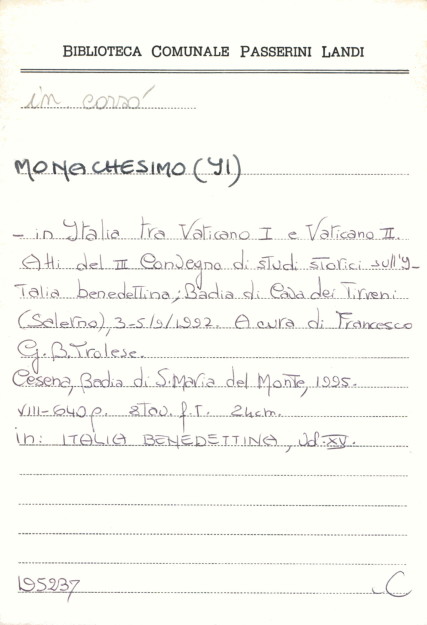 BIBLIOTECA COMUNALE PASSERINI LANDI
in corso
MONACHESIMO (Il)
- in Italia tra Vaticano I e Vaticano II.
Atti del III Convegno di studi storici sull'I-
talia benedettina; Badia di Cava dei Tirreni
(Salerno), 3-5/9/1992. A cura di Francesco
G. B. Trolese.
Cesena, Badia di S. Maria del Monte, 1995.
VIII-640 p. 8 tav. f.t. 24 cm.
in: ITALIA BENEDETTINA, vol. XV.
195237 C